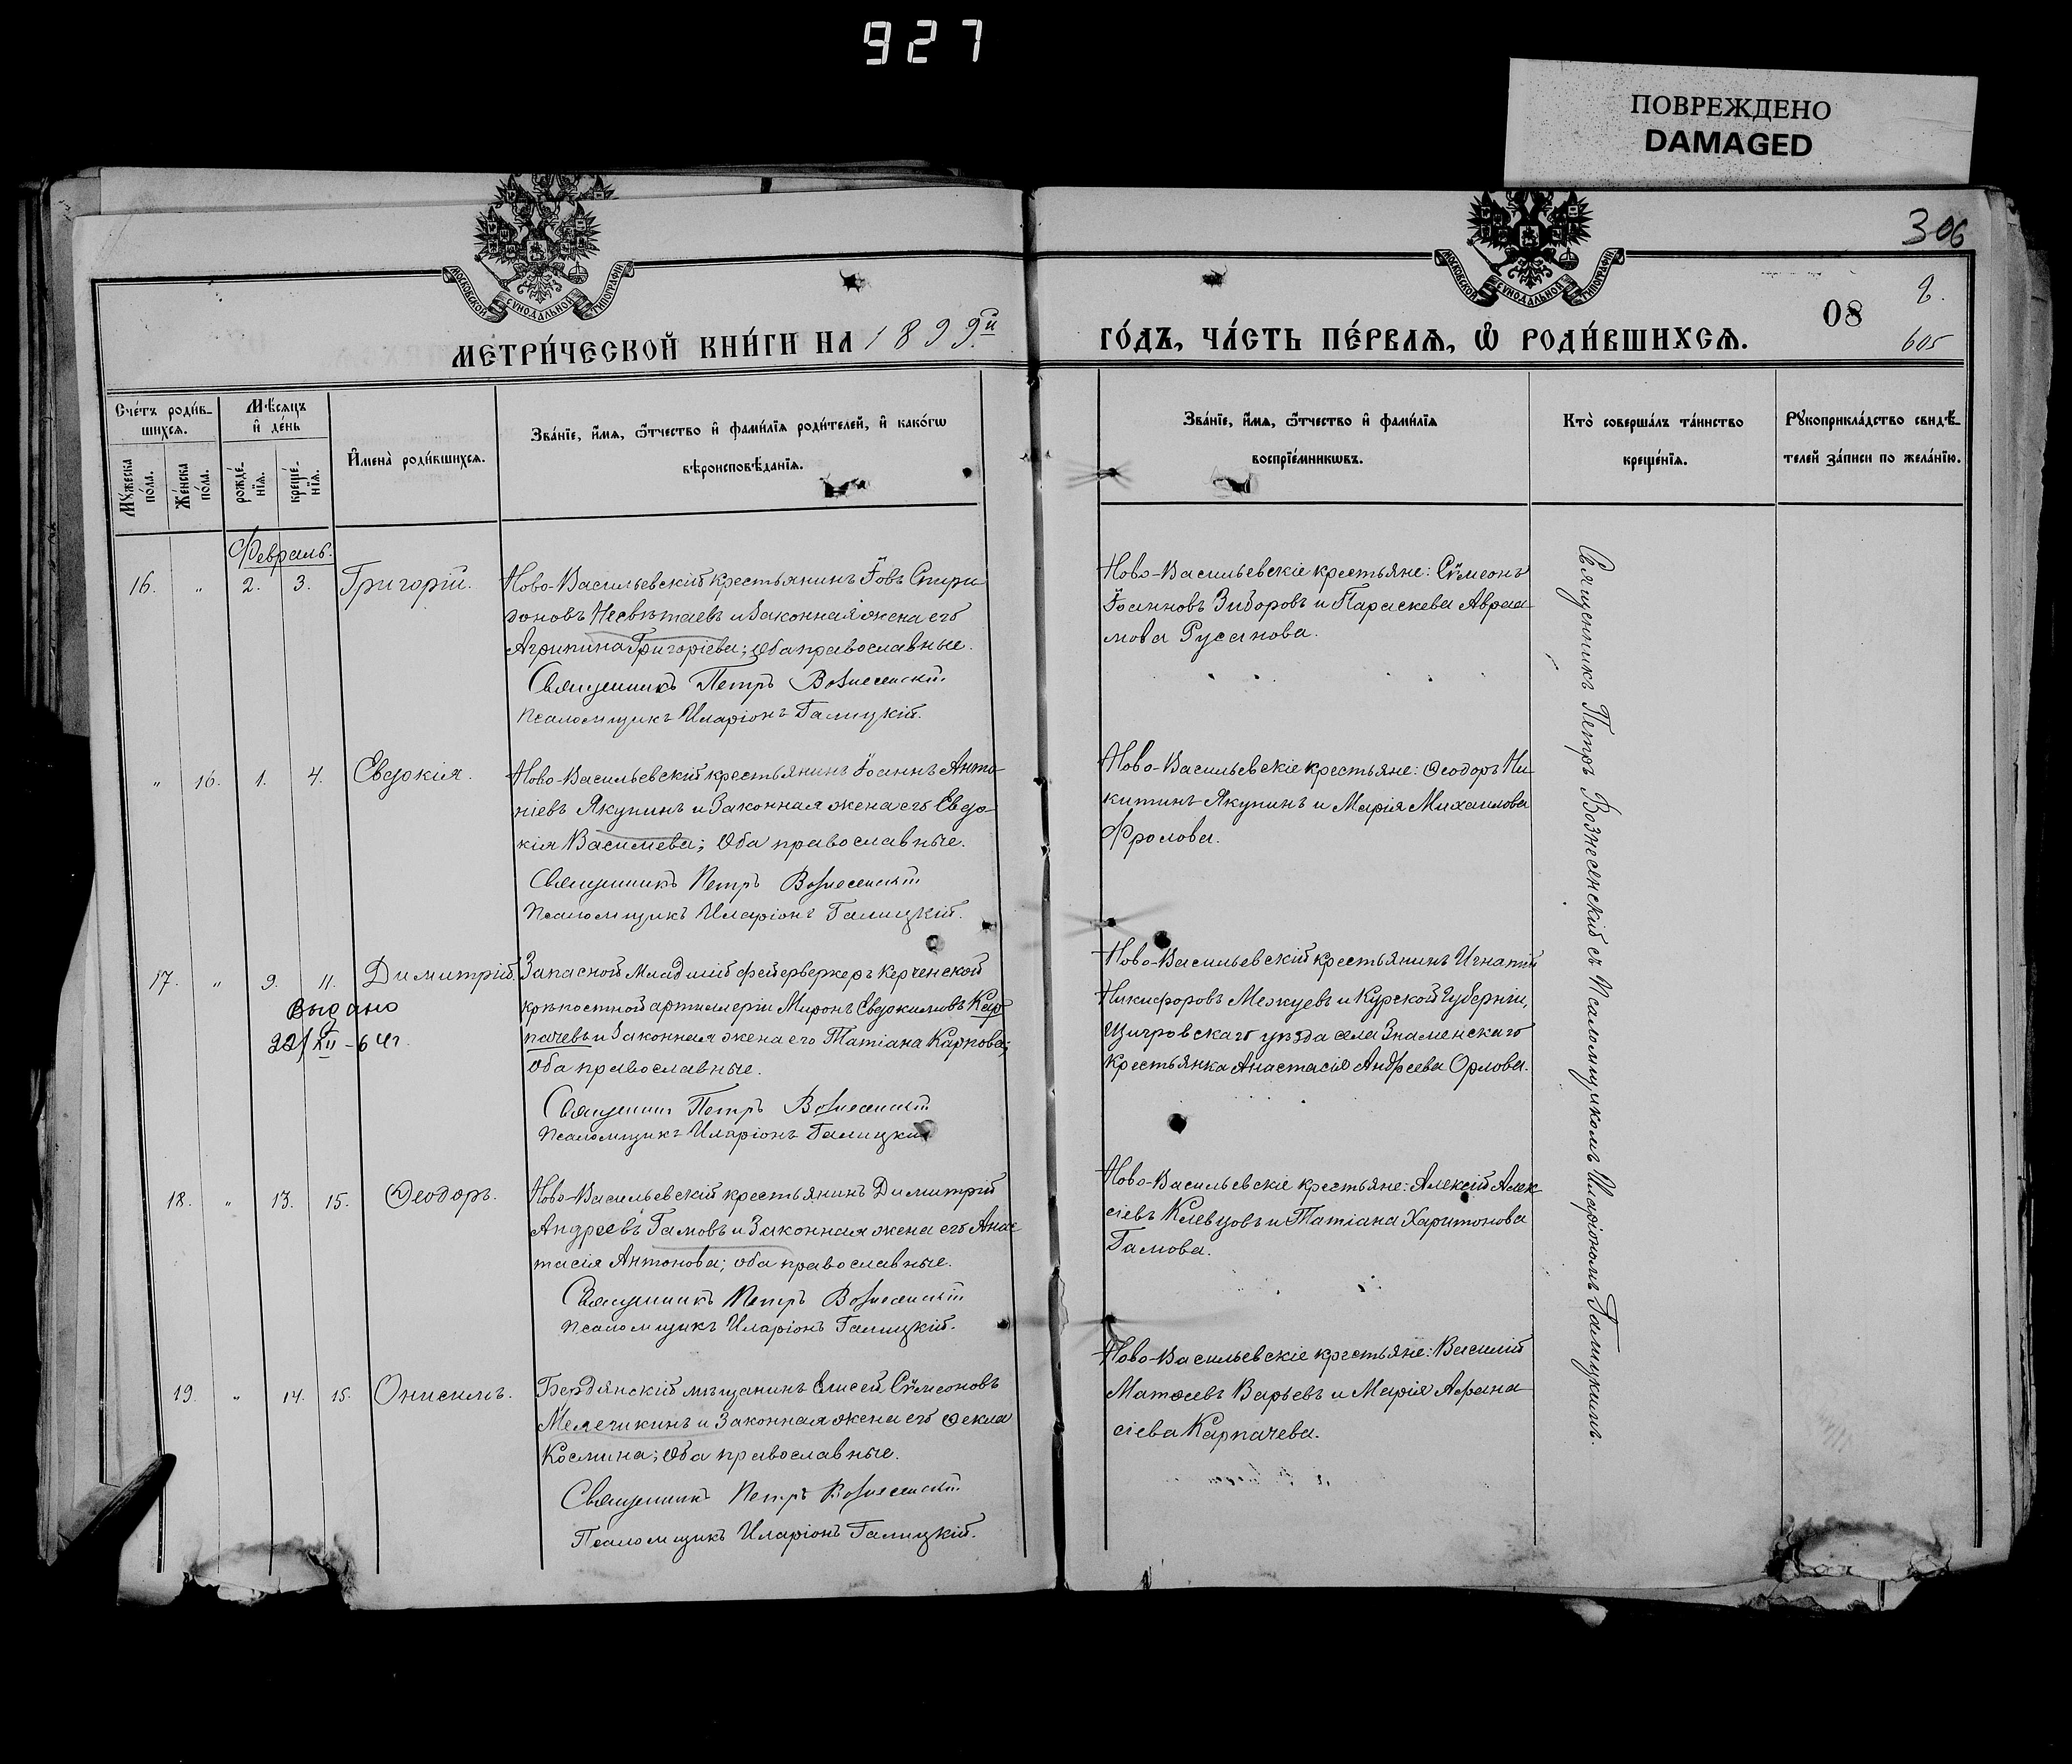 927
ПОВРЕЖДЕНО
DAMAGED
306
МОСКОВСКОЙ СУНОДАЛЬНОЙ ТИПОГРАФІИ
МОСКОВСКОЙ СУНОДАЛЬНОЙ ТИПОГРАФІИ
МЕТРИ́ЧЕСКОЙ КНИ́ГИ НА 1899й
ГО́ДЪ, ЧА́СТЬ ПЕ́РВАѦ, Ѽ РОДИ́ВШИХСѦ.
08
605
Сче́тъ роди́в-
шихсѧ.
Мꙋжеска по́ла.
Же́нска по́ла.
Мѣ́сѧцъ
и҆ де́нь
рожде-
нїѧ.
креще́-
нїѧ.
И҆мена̀ роди́вшихсѧ.
Зва́нїе, и҆́мѧ, ѻ҆́тчество и҆ фами́лїѧ роди́телей, и҆ како́гѡ
вѣроисповѣ́данїѧ.
Зва́нїе, и҆́мѧ, ѻ҆́тчество и҆ фами́лїѧ
воспрїе́мникѡвъ.
Кто̀ соверша́лъ та́инство
креще́нїѧ.
Рꙋкоприкла́дство свидѣ́-
телей за́писи по жела́нїю.
Февраль.
16. " 2. 3. Григорій.
Ново-Васильевскій крестьянинъ Іовъ Спири
доновъ Несвѣтаевъ и законная жена его
Агрипина Григоріева; оба православные.
Священникъ Петръ Вознесенскій
Псаломщикъ Иларіонъ Галицкій.
Ново-Васильевскіе крестьяне: Сѵмеонъ
Іоанновъ Зиборовъ и Параскева Авраа-
мова Русанова.
" 16. 1. 4. Евдокія.
Ново-Васильевскій крестьянинъ Іоаннъ Анто-
ніевъ Якунинъ и законная жена его Евдо-
кія Васильева; оба православные.
Священникъ Петръ Вознесенскій
Псаломщикъ Иларіонъ Галицкій.
Ново-Васильевскіе крестьяне: Ѳеодоръ Ни-
китинъ Якунинъ и Марія Михаилова
Фролова.
17. " 9. 11. Димитрій.
Выдано
22/XII - 64 г.
Запасной младшій фейерверкеръ Керченской
крѣпостной артиллеріи Миронъ Евдокимовъ Кар
пачевъ и законная жена его Татіана Карпова;
оба православные.
Священникъ Петръ Вознесенскій
Псаломщикъ Иларіонъ Галицкій
Ново-Васильевскій крестьянинъ Игнатій
Никифоровъ Межуевъ и Курской губерніи,
Щигровскаго уѣзда села Знаменскаго
крестьянка Анастасія Андреева Орлова.
18. " 13. 15. Ѳеодоръ.
Ново-Васильевскій крестьянинъ Димитрій
Андреевъ Гамовъ и законная жена его Анас
тасія Антонова; оба православные.
Священникъ Петръ Вознесенскій
Псаломщикъ Иларіонъ Галицкій.
Ново-Васильевскіе крестьяне: Алексій Алек
сіевъ Клевцовъ и Татіана Харитонова
Гамова.
19. " 14. 15. Онисимъ.
Бердянскій мѣщанинъ Елисей Сѵмеоновъ
Мелечикинъ и законная жена его Ѳекла
Космина; оба православные.
Священникъ Петръ Вознесенскій
Псаломщикъ Иларіонъ Галицкій.
Ново-Васильевскіе крестьяне: Василій
Матѳеевъ Варьевъ и Марія Афана-
сіева Карпачева.
Священникъ Петръ Вознесенскій съ Псаломщикомъ Иларіономъ Галицкимъ.